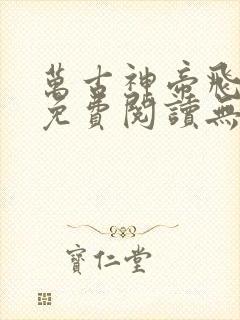 萬古神帝飛
免費閱讀無
寶仁堂